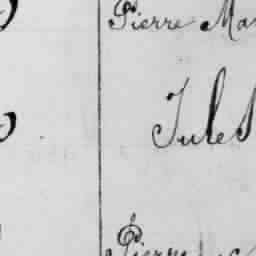 Pierre Ma
Jules
Pierre